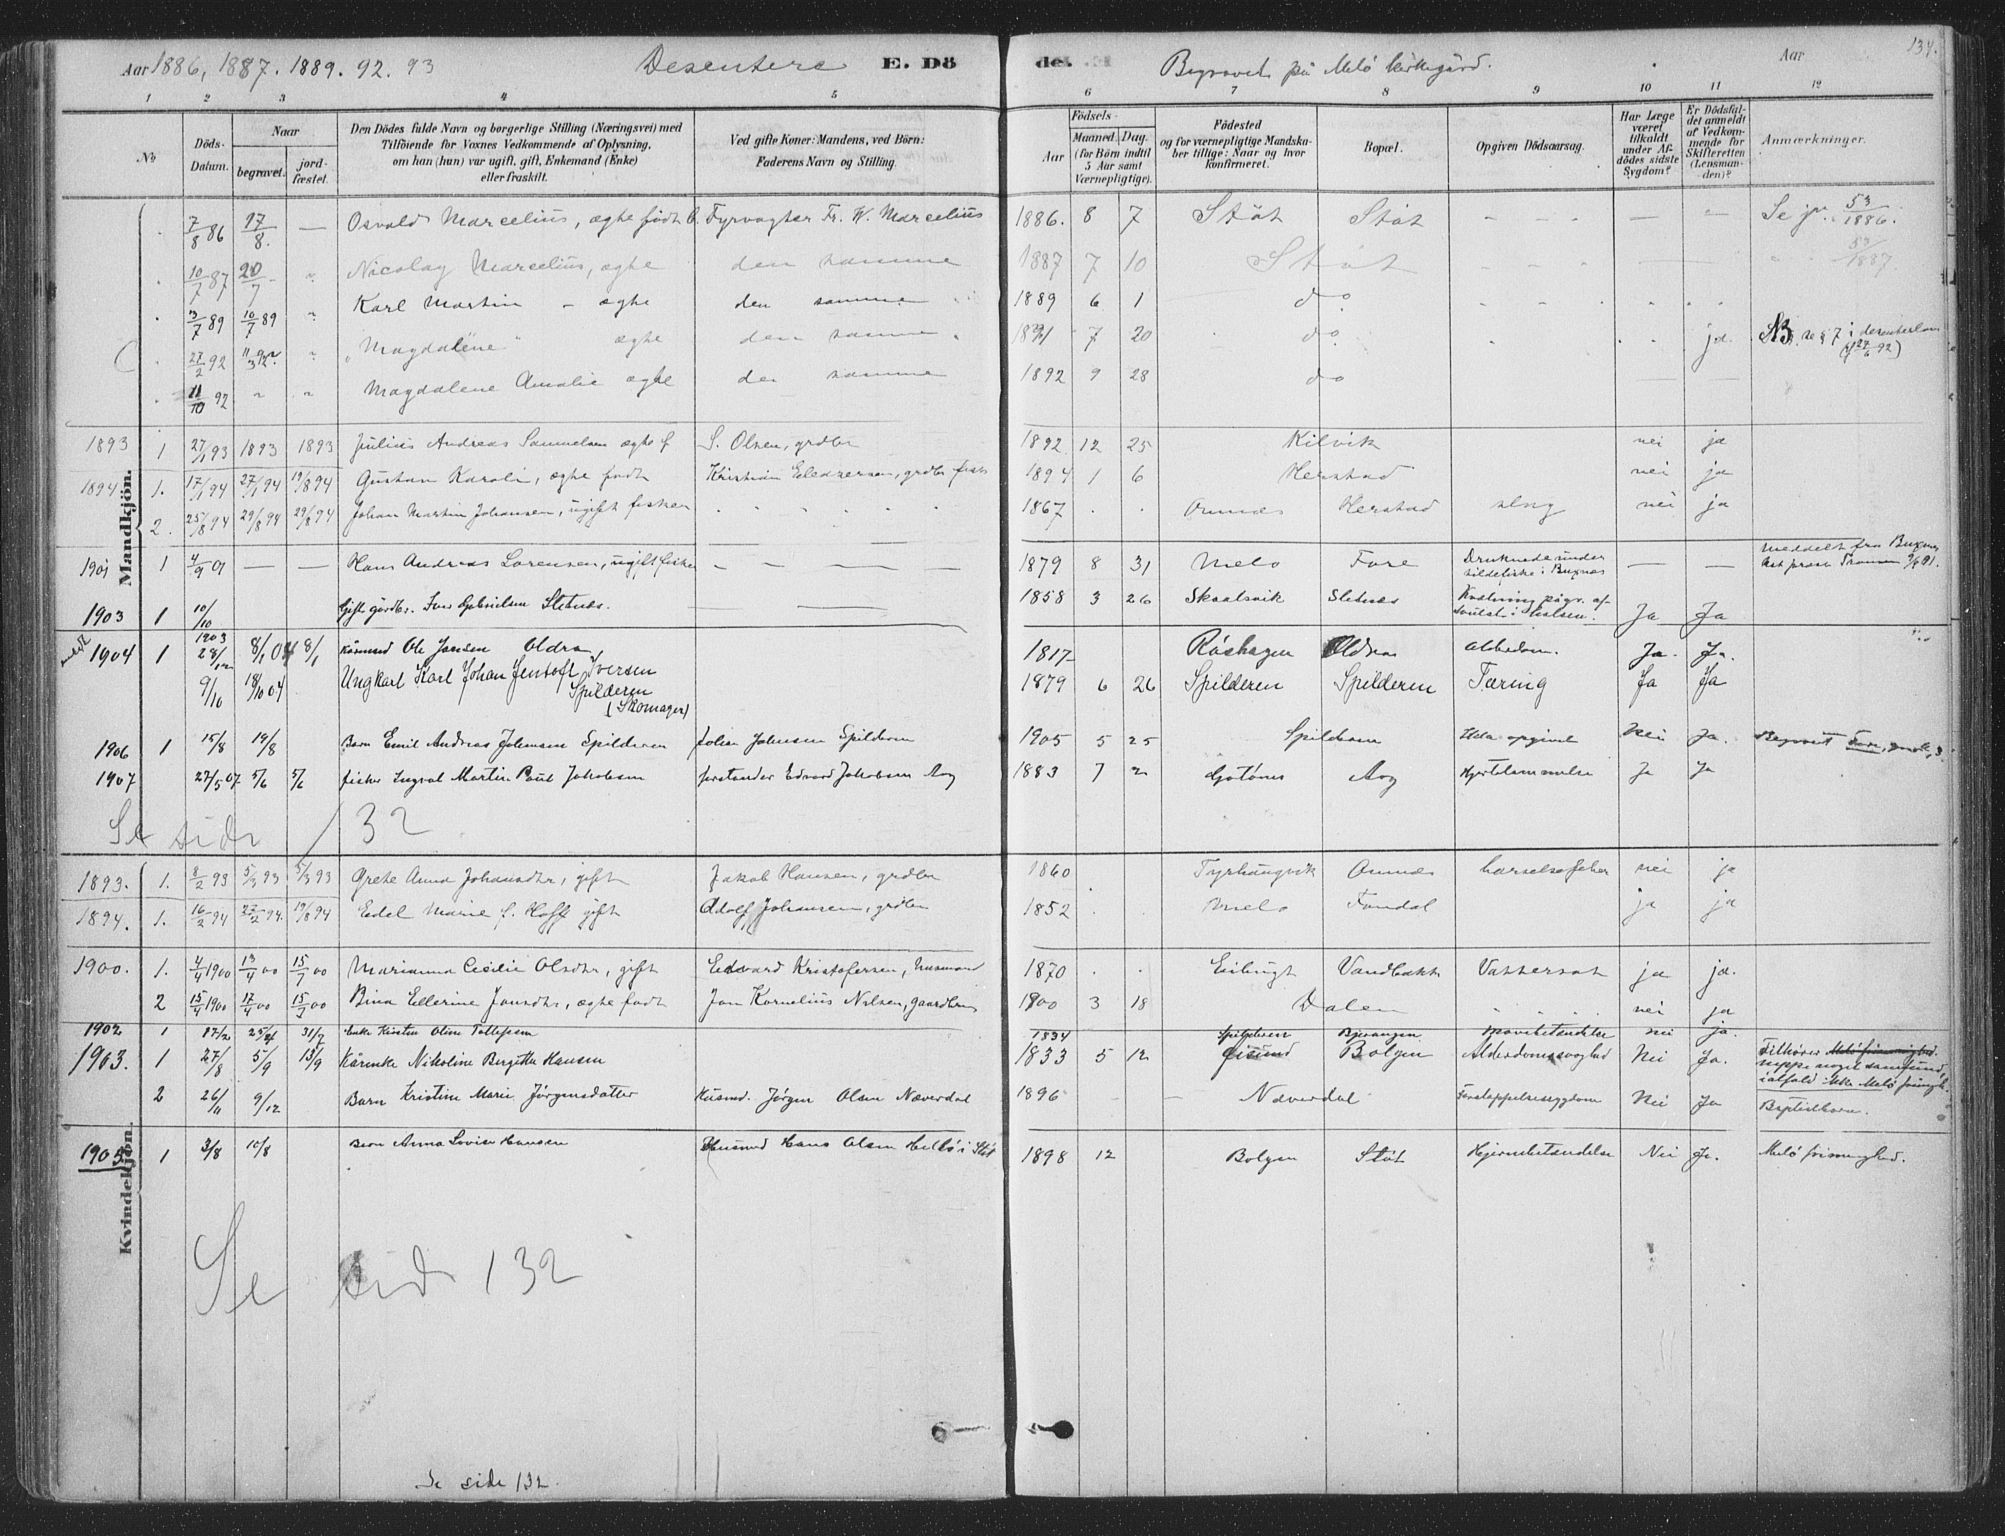 Aar 1886, 1887. 1889. 92. 93 Desentere E. Dö
de. Begravet på Melö kirkegård. Aar 134.
1 2 3 4 5 6 7 8 9 10 11 12
No
Döds-Datum.
Naar
begravet.
jord-fæstet.
Den Dödes fulde Navn og borgerlige Stilling (Næringsvei) med
Tilföiende for Voxnes Vedkommende af Oplysning,
om han (hun) var ugift, gift, Enkemand (Enke)
eller fraskilt.
Ved gifte Koner: Mandens, ved Börn:
Faderens Navn og Stilling.
Födsels-
Aar
Maaned. Dag.
(for Börn indtil
5 Aar samt
Værnepligtige).
Födested
og for værnepligtige Mandska-
ber tillige: Naar og hvor
konfirmeret.
Bopæl.
Opgiven Dödsaarsag.
Har Læge
været
tilkaldt
under Af-
dödes sidste
Sygdom?
Er Dödsfal-
det anmeldt
af Vedkom-
mende for
Skifteretten
(Lensman-
den)?
Anmærkninger.
Mandkjön.
7/8 86 17/8. — Osvald Marcelius, ægte født Fyrvogter Fr. W. Marcelius 1886. 8 7 Støt Støt - - - — — Se 53/1886.
10/7 87 20/7 " Nicolay Marcelius, ægte den samme 1887 7 10 Støt - - - 53/1887
3/7 89 10/7 89 " Karl Martin - ægte den samme 1889 6 1 do
27/2 92 11/3 92. " "Magdalene" ægte den samme 7 20 do ja. NB. se § 7 i desenterloven (27/6 92)
11/10 92 " " Magdalene Amalie ægte den samme 1892 9 28 do
1893 1 27/1 93 1893 1893 Julius Andreas Samuelsen ægte f S. Olsen, grdbr 1892 12 25 Kilvik nei ja
1894 1. 17/1 94 27/1 94 19/8 94 Gustav Karoli, ægte født Kristian Eleazersen, grdbr fisk 1894 1 6 Herstad nei ja
2. 25/8 94 29/8 94 29/8 94 Johan Martin Johansen, ugift fisker 1867 . . Ornnes Herstad slag nei ja
1901 1 4/9 01 — — Hans Andreas Lorensen, ugift fisker - - - - - 1879 8 31 Melø Fore Druknede under sildefiske i Buxnes — — Meddelt fra Buxnes
1903 1 10/10 Gift gårdbr. Iver Gabrielsen Sletnæs. 1858 3 26 Skaalsvik Sletnæs Kvælning pågr. af Svulst i Halsen. Ja Ja
1904 1 1903 28/12 8/1 04 8/1 Kårmnd Ole Jansen Oldra, 1817 - Røshagen Oldra Alderdom. Ja. Ja.
9/10 18/10 04 Ungkarl Karl Johan Jentoft Iversen
Spilderen
(Skomager) 1879 6 26 Spilderen Spilderen Tæring Ja Ja
1906 1 15/8 19/8 Barn Emil Andreas Johansen Spilderen Johan Johnsen Spilderen 1905 5 25 Spilderen Ikke opgivet Nei Ja. Begravet Fore,
1907 27/5 07 5/6 5/6 fisker Ingval Martin Paul Jakobsen forstander Edvard Jakobsen Aag 1883 7 2 Gotønes Aag Hjertelammelse Ja Ja
Se side 132
Kvindekjön.
1893. 1. 8/2 93 5/3 93 5/3 93 Grete Anna Johansdtr, gift Jakob Hansen, grdbr 1860 . Tyrhaugvik Ornnes barselsefeber nei ja
1894. 1. 16/2 94 27/2 94. 19/8 94 Eedel Marie f. Hoff gift Adolf Johansen, grdbr 1852 . . Melø Fondal ja ja
1900. 1. 4/4 1900 13/4 00 15/7 00 Marianna Cecilie Olsdtr, gift Edvard Kristofersen, husmand 1870 . . Eilingt Vandbakk Vattersot ja ja.
2 15/4 1900 17/4 00 15/7 00 Bina Ellerine Jansdtr, ægte født Jan Kornelius Nilsen, gaardbrs 1900 3 18 Dalen nei ja
1902 1 17/2 25/2 31/7 Enke Kirsten Oline Tollefsen 1834 Spilderen Bjerangen nei ja.
1903. 1 27/8 5/9 13/9 Kårenke Nikoline Birgitte Hansen 1833 5 12 Geisund Bolgen Alderdomssvaghed Nei Ja. Tilhører Melö frimenighed. neppe noget samfund, ialfald ikke Melö frimgh.
2 26/11 9/12 Barn Kristine Marie Jørgensdatter Husmd. Jørgen Olsen Næverdal 1896 - - Næverdal Nei Ja Baptistbarn.
1905 1 3/8 10/8 Barn Anna Lovise Hansen Husmd Hans Olsen Helløi Støt 1898 12 Bolgen Støt Hjernebetændelse Nei Ja. Melö frimenighed.
Se side 132
Se side 132.